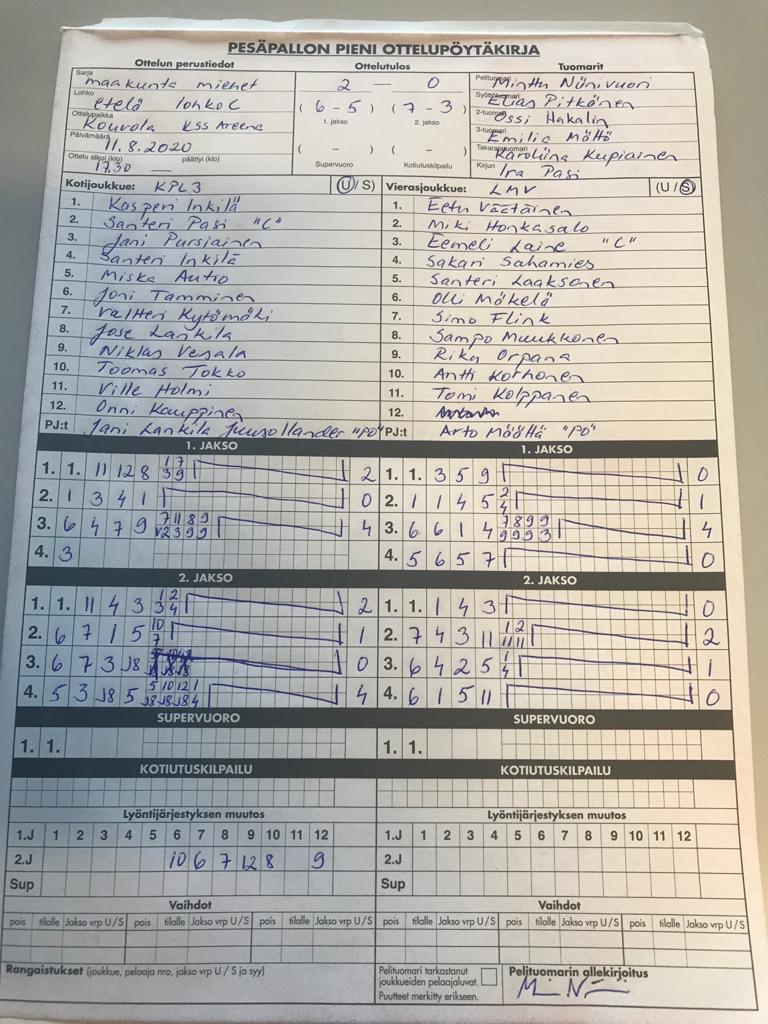 PESÄPALLON PIENI OTTELUPÖYTÄKIRJA
Ottelun perustiedot Ottelutulos Tuomarit
Sarja maakunta miehet 2 — 0 Pelituomari Minttu Nönivuori
Lohko etelä lohko C (6-5) (7-3) Syöttötuomari Elias Pitkönen
Ottelupaikka Kouvola KSS Areena 1. jakso 2. jakso 2-tuomari Ossi Hakalin
Päivämäärä 11.8.2020 ( - ) ( - ) 3-tuomari Emilia Möltö
Ottelu alkoi (klo) 17.30 päättyi (klo) — Supervuoro Kotiutuskilpailu Takarajatuomari Karoliina Kupiainen
Kirjuri Ira Pasi
Kotijoukkue: KPL3 (U/S) Vierasjoukkue: LMV (U/S)
1. Kasperi Inkilä 1. Eetu Väätäinen
2. Santeri Pasi "C" 2. Miki Honkasalo
3. Jani Pursiainen 3. Eemeli Laine "C"
4. Santeri Inkilä 4. Sakari Sahamies
5. Miska Autio 5. Santeri Laaksonen
6. Joni Tamminen 6. Olli Mökelö
7. Valtteri Kytömöki 7. Simo Flink
8. Jose Lankila 8. Sampo Muukkonen
9. Niklas Vesala 9. Riku Orpana
10. Toomas Tokko 10. Antti Korhonen
11. Ville Holmi 11. Tomi Kolppanen
12. Onni Kauppinen 12.
PJ:t Jani Lankila "PJ" PJ:t Arto Mööltä "PJ"
1. JAKSO 1. JAKSO
1. 1. 11 12 8 1 7 2 1. 1. 3 5 9 0
3 9
2. 1 3 4 1 0 2. 1 1 4 5 2 1
4
3. 6 4 7 9 7 11 8 9 4 3. 6 6 1 4 7 8 9 9 4
2 3 9 9 9 9 9 3
4. 3 4. 5 6 5 7 0
2. JAKSO 2. JAKSO
1. 1. 11 4 3 1 2 2 1. 1. 1 4 3 0
3 4
2. 6 7 1 5 10 1 2. 7 4 3 11 1 2 2
7 11 11
3. 6 7 3 J8 0 3. 6 4 2 5 1 1
4
4. 5 3 J8 5 5 10 12 1 4 4. 6 1 5 11 0
J8 J8 J8 4
SUPERVUORO SUPERVUORO
1. 1. 1. 1.
KOTIUTUSKILPAILU KOTIUTUSKILPAILU
Lyöntijärjestyksen muutos Lyöntijärjestyksen muutos
1.J 1 2 3 4 5 6 7 8 9 10 11 12 1.J 1 2 3 4 5 6 7 8 9 10 11 12
2.J 10 6 7 12 8 9 2.J
Sup Sup
Vaihdot Vaihdot
pois tilalle Jakso vrp U/S pois tilalle Jakso vrp U/S pois tilalle Jakso vrp U/S pois tilalle Jakso vrp U/S pois tilalle Jakso vrp U/S pois tilalle Jakso vrp U/S
Rangaistukset (joukkue, pelaaja nro, jakso vrp U / S ja syy) Pelituomari tarkastanut Pelituomarin allekirjoitus
joukkueiden pelaajaluvat.
Puutteet merkitty erikseen.